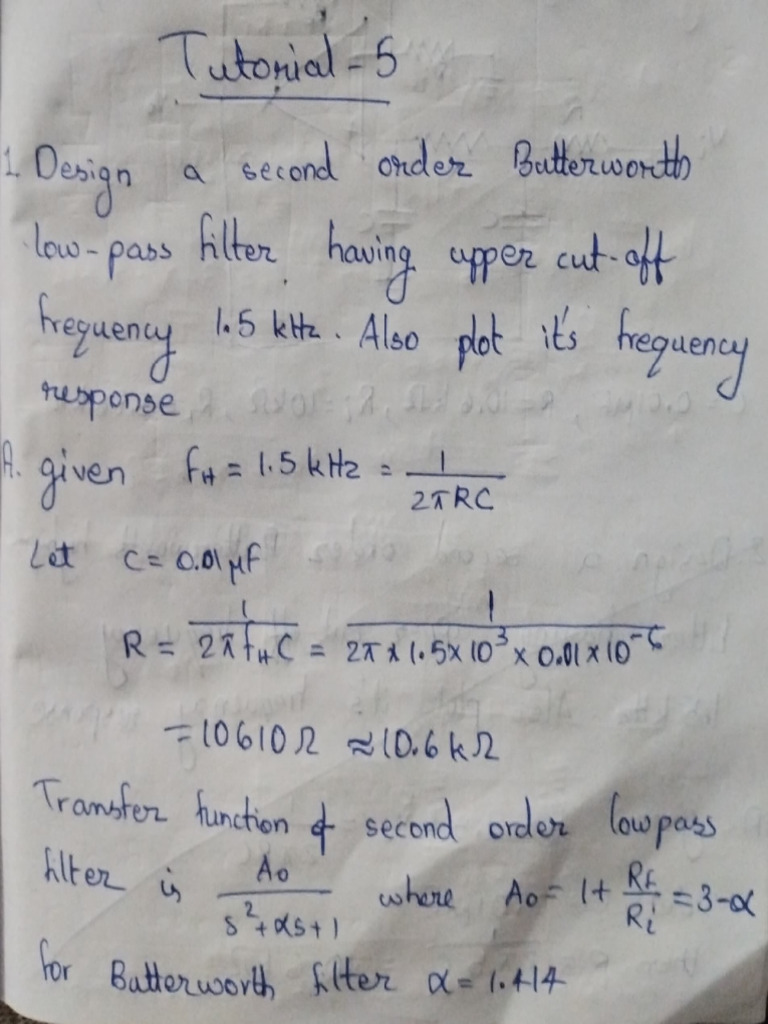 Tutorial-5
1. Design a second order Butterworth
low-pass filter having upper cut-off
frequency 1.5 kHz. Also plot it's frequency
response
A. given fH = 1.5 kHz = 1/2πRC
Let C = 0.01 μF
R = 1/2π fH C = 1/2π x 1.5 x 10³ x 0.01 x 10⁻⁶
= 10610Ω ≈ 10.6 kΩ
Transfer function of second order lowpass
filter is A0/s²+αs+1 where A0 = 1+ Rf/Ri = 3-α
for Butterworth filter α = 1.414